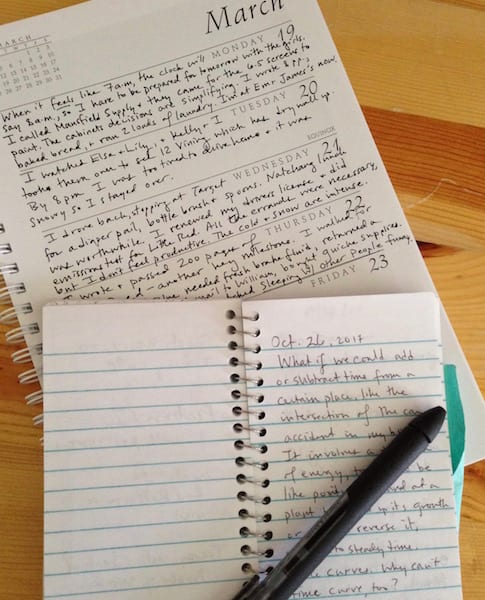 March
MARCH
MONDAY 19
When it feels like 7am, the clock will
say 8am, so I have to be prepared for tomorrow with the girls.
I called Mansfield Supply & they came for the 6.5 screens to
paint. The cabinets decisions are simplifying. I wrote 8 pp.,
baked bread, & ran 2 loads of laundry. I'm at Em & James's now.
TUESDAY 20
I watched Elsa & Lily, & Kelly & I
took them over to set 12 Vining, which has drywall up.
By 8pm I was too tired to drive home & it was
snowy so I stayed over.
EQUINOX
WEDNESDAY 21
I drove back, stopping at Target
for a diaper pail, bottle brush & spoons. Natchaug lunch
was worthwhile. I renewed my drivers license & did
emissions test for Little Red. All the errands were necessary,
but I don't feel productive. The cold & snow are intense.
THURSDAY 22
I wrote & passed 200 pages of
another key milestone. I walked for
Blue needed fresh brake fluid, returned a
mail to William, bought quiche supplies.
Sleeping w/ Other People funny.
FRIDAY 23
Oct. 26, 2017
What if we could add
or subtract time from a
certain place, like the
intersection of the car
accident in my
It involves a
of energy, be
like and at a
plant its growth
or reverse it,
to steady time.
curves. Why can't
time curve, too?